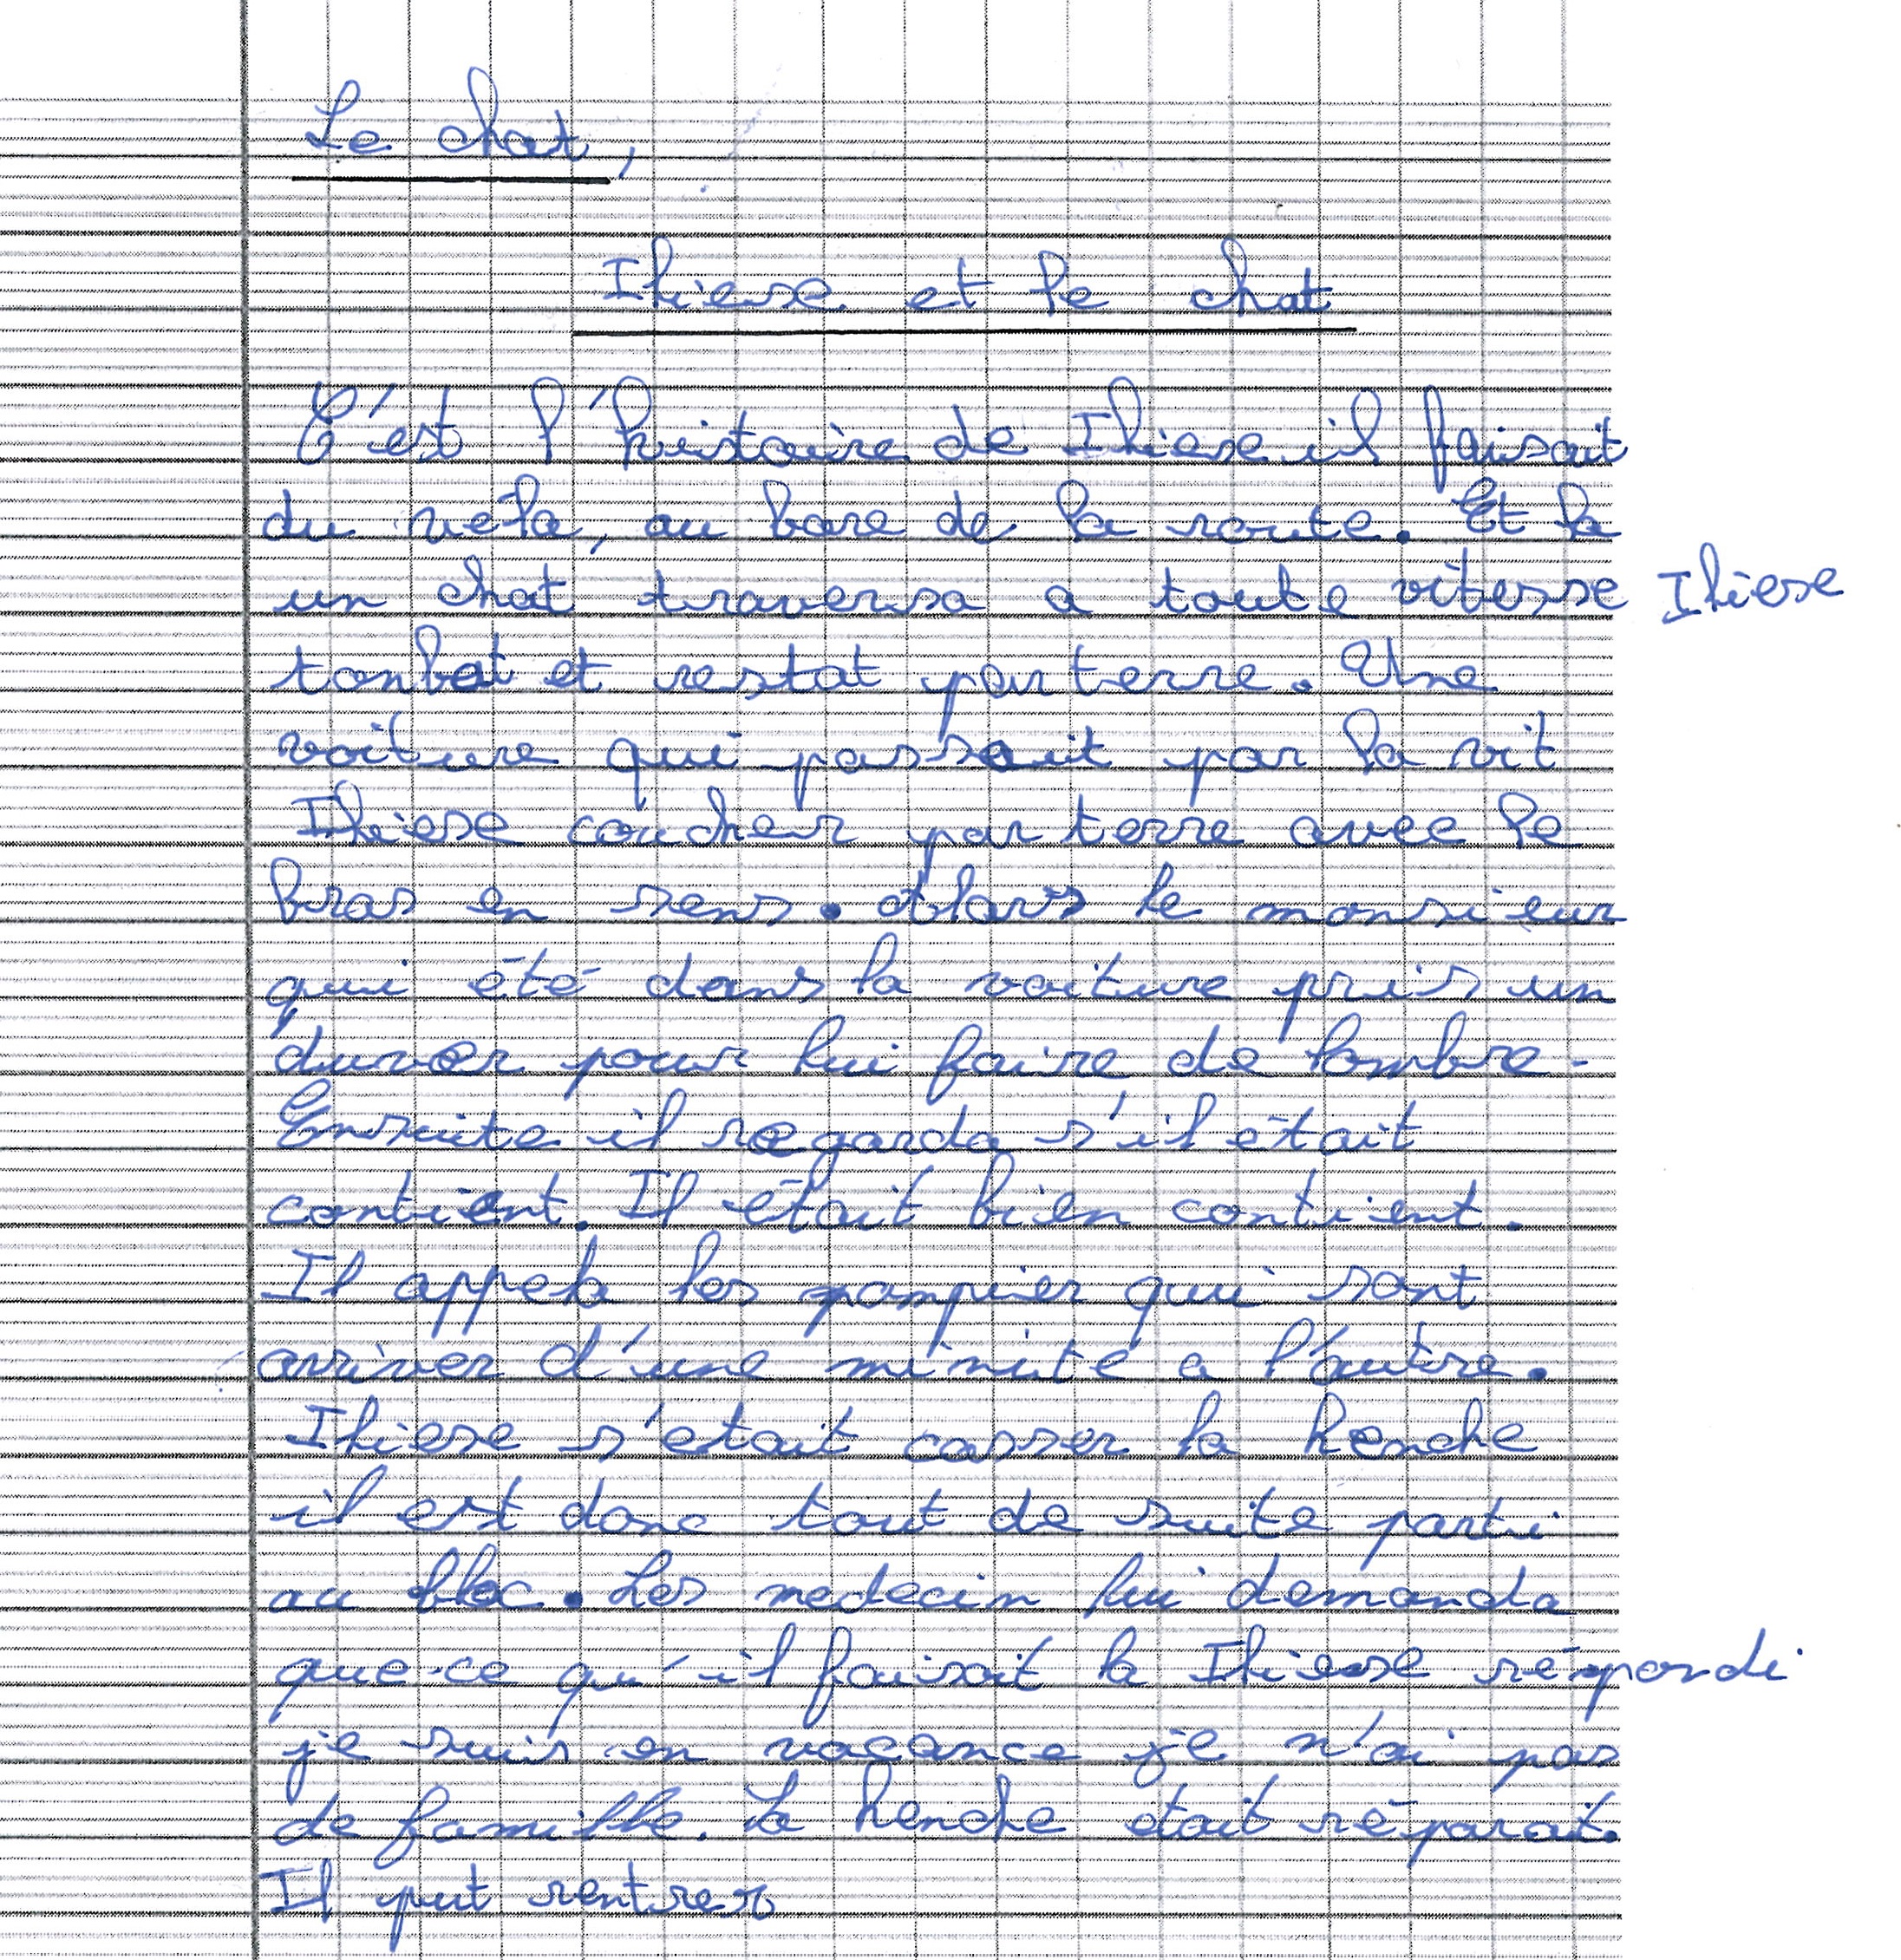 Le chat,
Ihiese et le chat
C'est l'histoire de Ihiese il faisait
du vélo, au bare de la route. Et la
un chat traversa a toute vitesse Ihiese
tonbat et restat par terre. Une
voiture qui passait par la vit
Ihiese coucher par terre avec le
bras en sens. Alors le monsieur
qui été dans la voiture pris un
duver pour lui faire de lombre.
Ensuite il regarda s'il était
contient. Il était bien contient.
Il appela les pompier qui sont
arriver d'une minute a l'autre.
Ihiese s'etait casser la henche
il est donc tout de suite parti
au bloc. Les medecin lui demanda
que-ce qu'il faisait la Ihiese répondi
je suis en vacance je n'ai pas
de famille. La henche etait réparait.
Il put rentrer